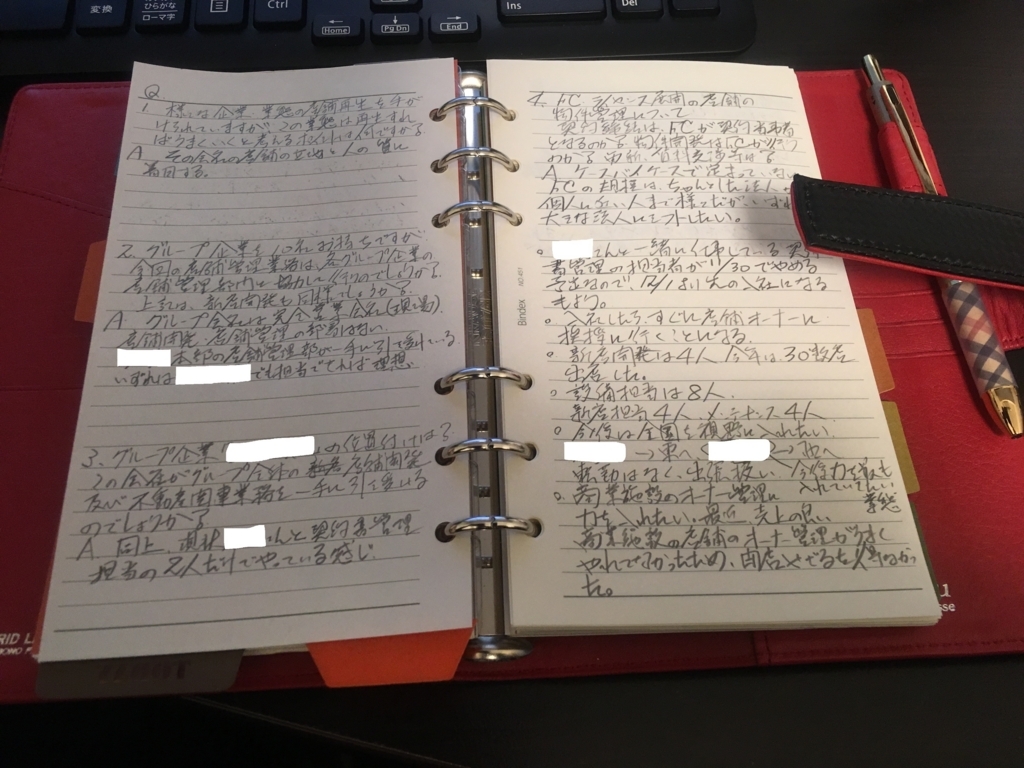 変換
ひらがな
ローマ字
Ctrl
Home
Pg Dn
End
Ins
Del
Q
1. 様々な企業、業態の店舗再生を手が
けられていますが、この業態は再生すれ
ばうまくいくと考えるポイントは何ですか?
A その会社の店舗の立地と人の質に
着目する。
2. グループ企業を お持ちですが
今回の店舗管理業務は、各グループ企業の
店舗管理部門と協力して行うのでしょうか?
又は、新店開発も同様でしょうか?
A グループ会社は完全事業会社
店舗開発・店舗管理の部署はない
本部の店舗管理部が一手に引き受けている。
いずれは でも担当できれば理想
3. グループ企業 の位置付けは?
この会社がグループ全体の 店舗開発
及び不動産関連業務を一手に引き受ける
のでしょうか?
A. 同上、現状 さんと契約書管理
担当の2人だけでやっている感じ
4. FC、ライセンス店舗の店舗の
物件管理について
契約締結は、FCが契約当事者
となるのか? 物件開発はFCが行う
のか? 更新、賃料支払等は?
A ケースバイケースで決まっていない
FCの規模は、ちゃんとした法人、
個人に近い人まで様々だがいずれ
大きな法人にシフトしたい。
○ さんと一緒に仕事している契約
書管理の担当者が11/30でやめる
予定なので、12/1より先の入社になる
もよう。
○ 入社したら、すぐに店舗オーナーに
挨拶に行くことになる。
○ 新店開発は4人 今年は30数店
出店した。
○ 設備担当は8人
新店担当4人、メンテナンス4人
○ 今後は全国を視野に入れたい。
→東へ →西へ
転勤はなく、出張扱い 今後力を最も
入れていきたい
業態
○ 商業施設のオーナー管理に
力を入れたい。最近、売上の良い
商業施設の店舗のオーナー管理がうまく
やれてなかったため、閉店せざるを得なかっ
た。
Bindex